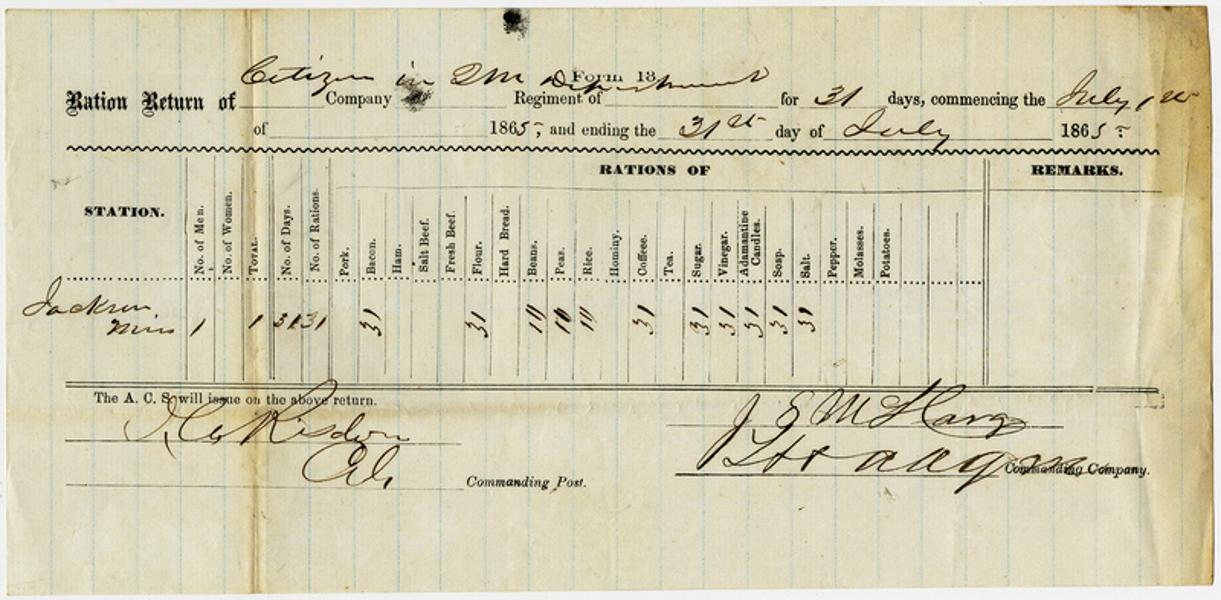 Form 13
Ration Return of Citizen in QM Department Company Regiment of for 31 days, commencing the July 1st
of 1865, and ending the 31st day of July 1865.
RATIONS OF REMARKS.
STATION. No. of Men. No. of Women. TOTAL. No. of Days. No. of Rations. Pork. Bacon. Ham. Salt Beef. Fresh Beef. Flour. Hard Bread. Beans. Peas. Rice. Hominy. Coffeee. Tea. Sugar. Vinegar. Adamantine Candles. Soap. Salt. Pepper. Molasses. Potatoes.
Jackson
Miss 1 1 31 31 31 31 10 31 31 31 31 31 31
The A. C. S. will issue on the above return.
Risdon J E
Commanding Company.
Commanding Post.